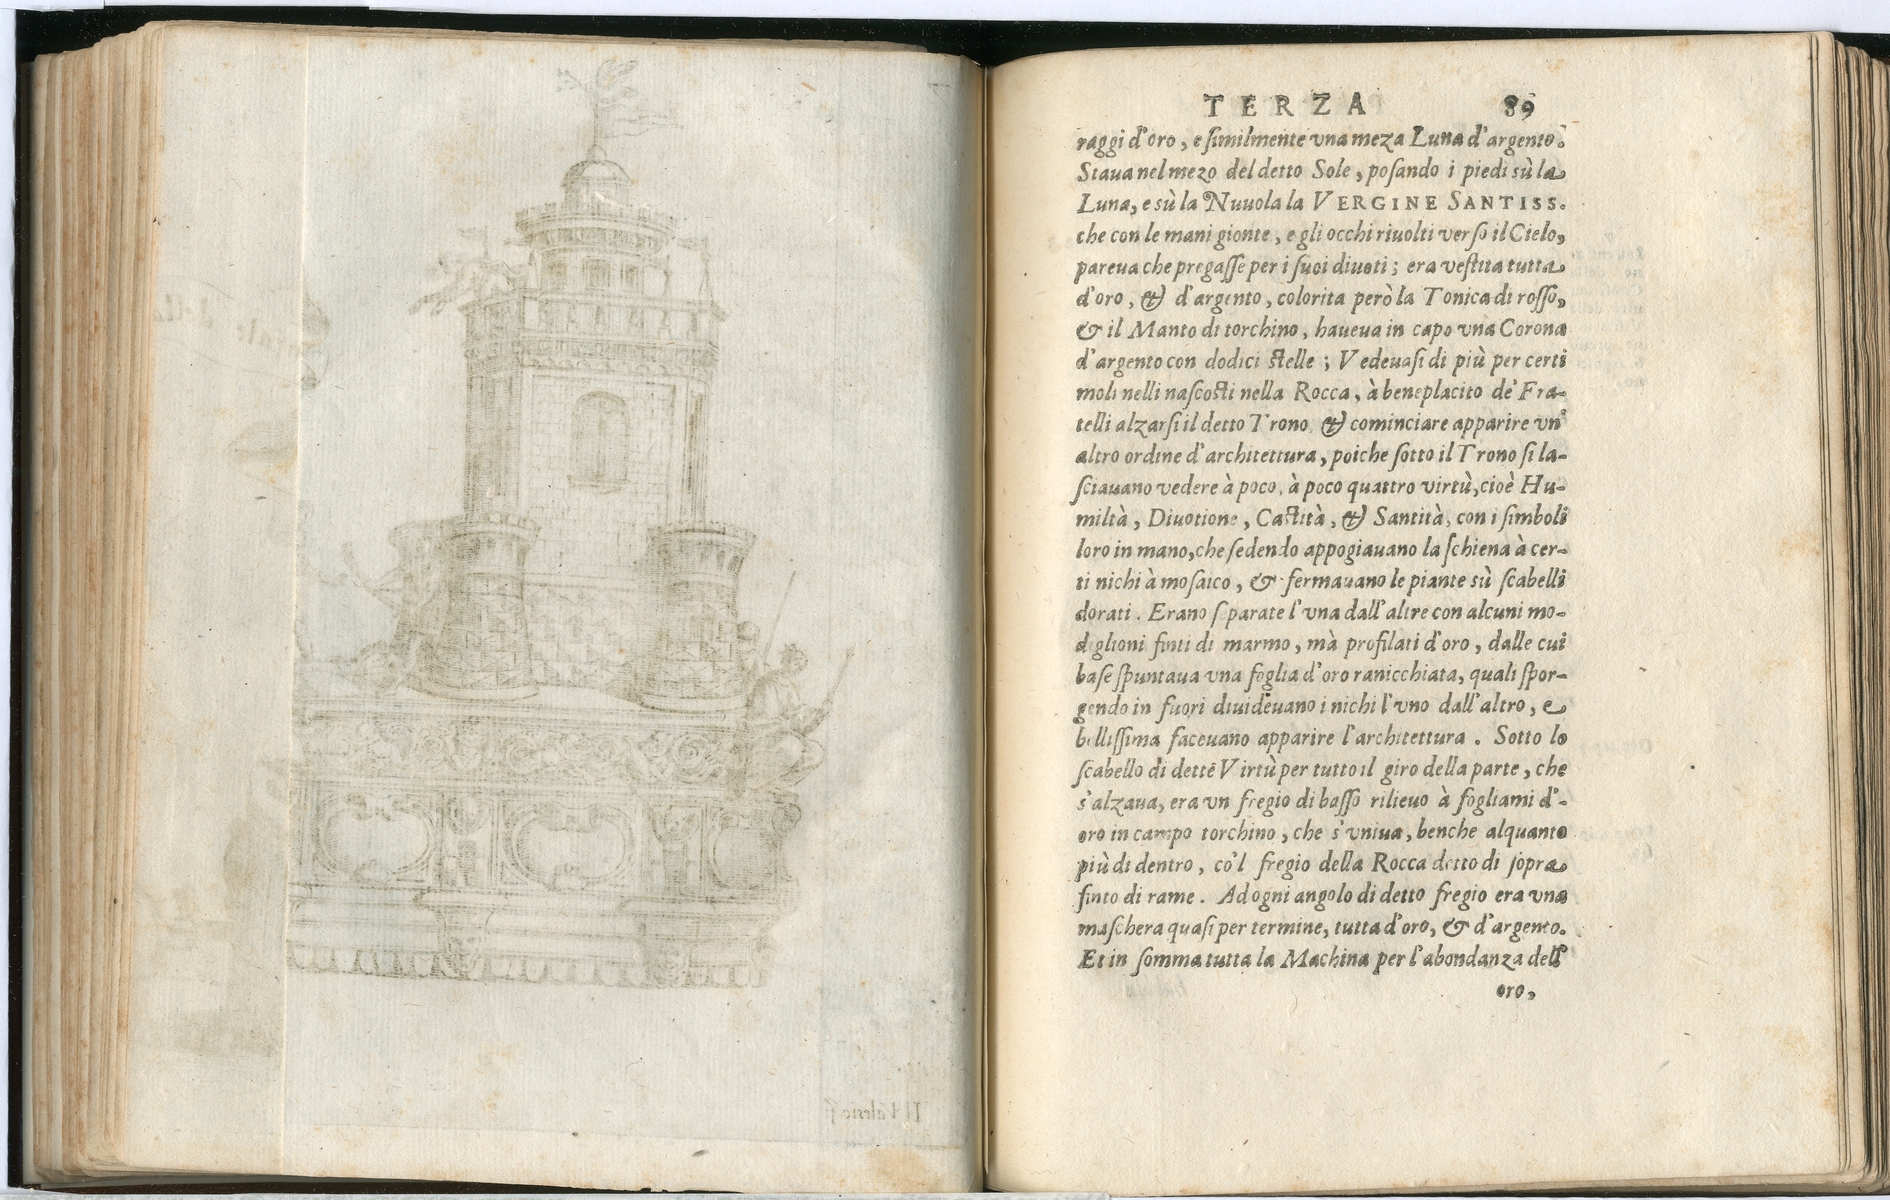 TERZA 89
raggi d'oro, e similmente vna meza Luna d'argento.
Staua nel mezo del detto Sole, posando i piedi sù la
Luna, e sù la Nuuola la VERGINE SANTISS.
che con le mani gionte, e gli occhi riuolti verso il Cielo,
pareua che pregasse per i suoi diuoti; era vestita tutta
d'oro, & d'argento, colorita però la Tonica di rosso,
& il Manto di torchino, haueua in capo vna Corona
d'argento con dodici stelle; Vedeuasi di più per certi
molinelli nascosti nella Rocca, à beneplacito de' Fra-
telli alzarsi il detto Trono, & cominciare apparire vn'
altro ordine d'architettura, poiche sotto il Trono si la-
sciauano vedere à poco, à poco quattro virtù, cioè Hu-
miltà, Diuotione, Castità, & Santità, con i simboli
loro in mano, che sedendo appogiauano la schiena à cer-
ti nichi à mosaico, & fermauano le piante sù scabelli
dorati. Erano separate l'vna dall'altre con alcuni mo-
diglioni finti di marmo, mà profilati d'oro, dalle cui
base spuntaua vna foglia d'oro ranicchiata, quali spor-
gendo in fuori diuideuano i nichi l'vno dall'altro, e
bellissima faceuano apparire l'architettura. Sotto lo
scabello di dette Virtù per tutto il giro della parte, che
s'alzaua, era vn fregio di basso rilieuo à fogliami d'-
oro in campo torchino, che s'vniua, benche alquanto
più di dentro, co'l fregio della Rocca detto di sopra
finto di rame. Ad ogni angolo di detto fregio era vna
maschera quasi per termine, tutta d'oro, & d'argento.
Et in somma tutta la Machina per l'abondanza dell'
oro,
Il Valesio f